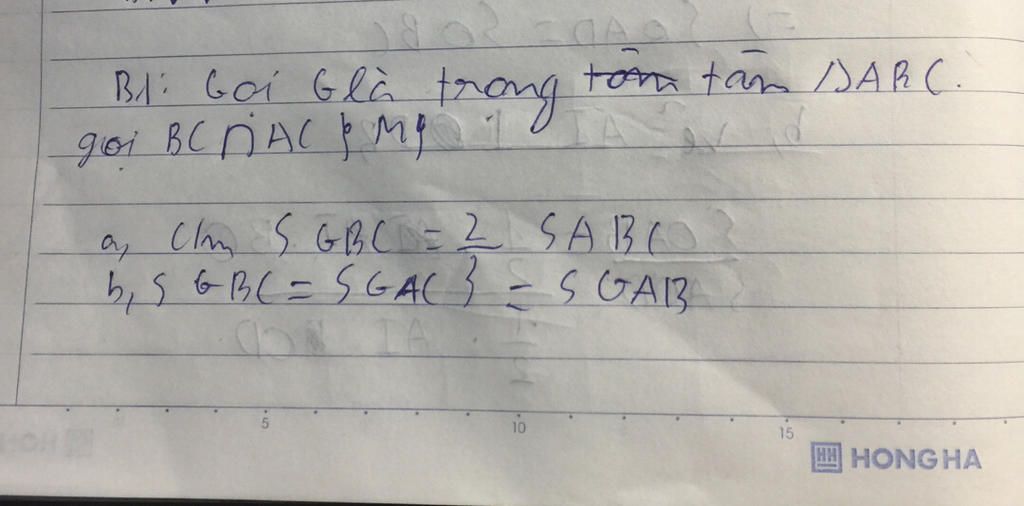 B1: Gọi G là trọng tâm tâm ΔABC.
gọi BC ∩ AC {M}
a, C/m S GBC = 2/3 S ABC
b, S GBC = S GAC = S GAB
5 10 15
HONG HA